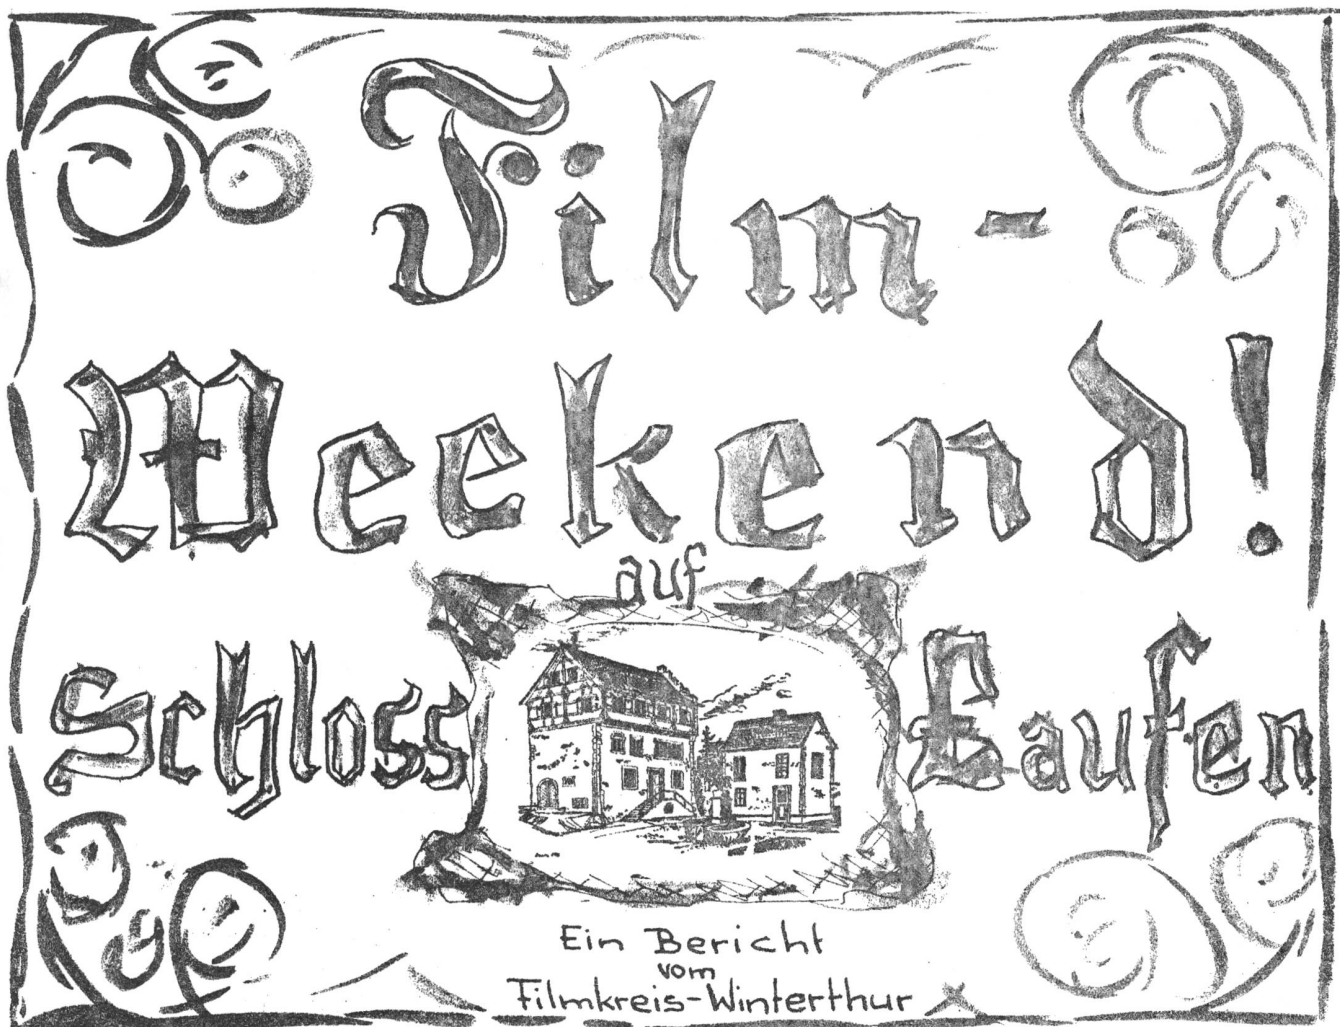 Film-
Weekend!
auf
Schloss Laufen
Ein Bericht
vom
Filmkreis-Winterthur